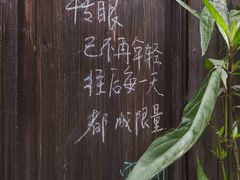 转眼
已不再年轻
往后每一天
都成限量